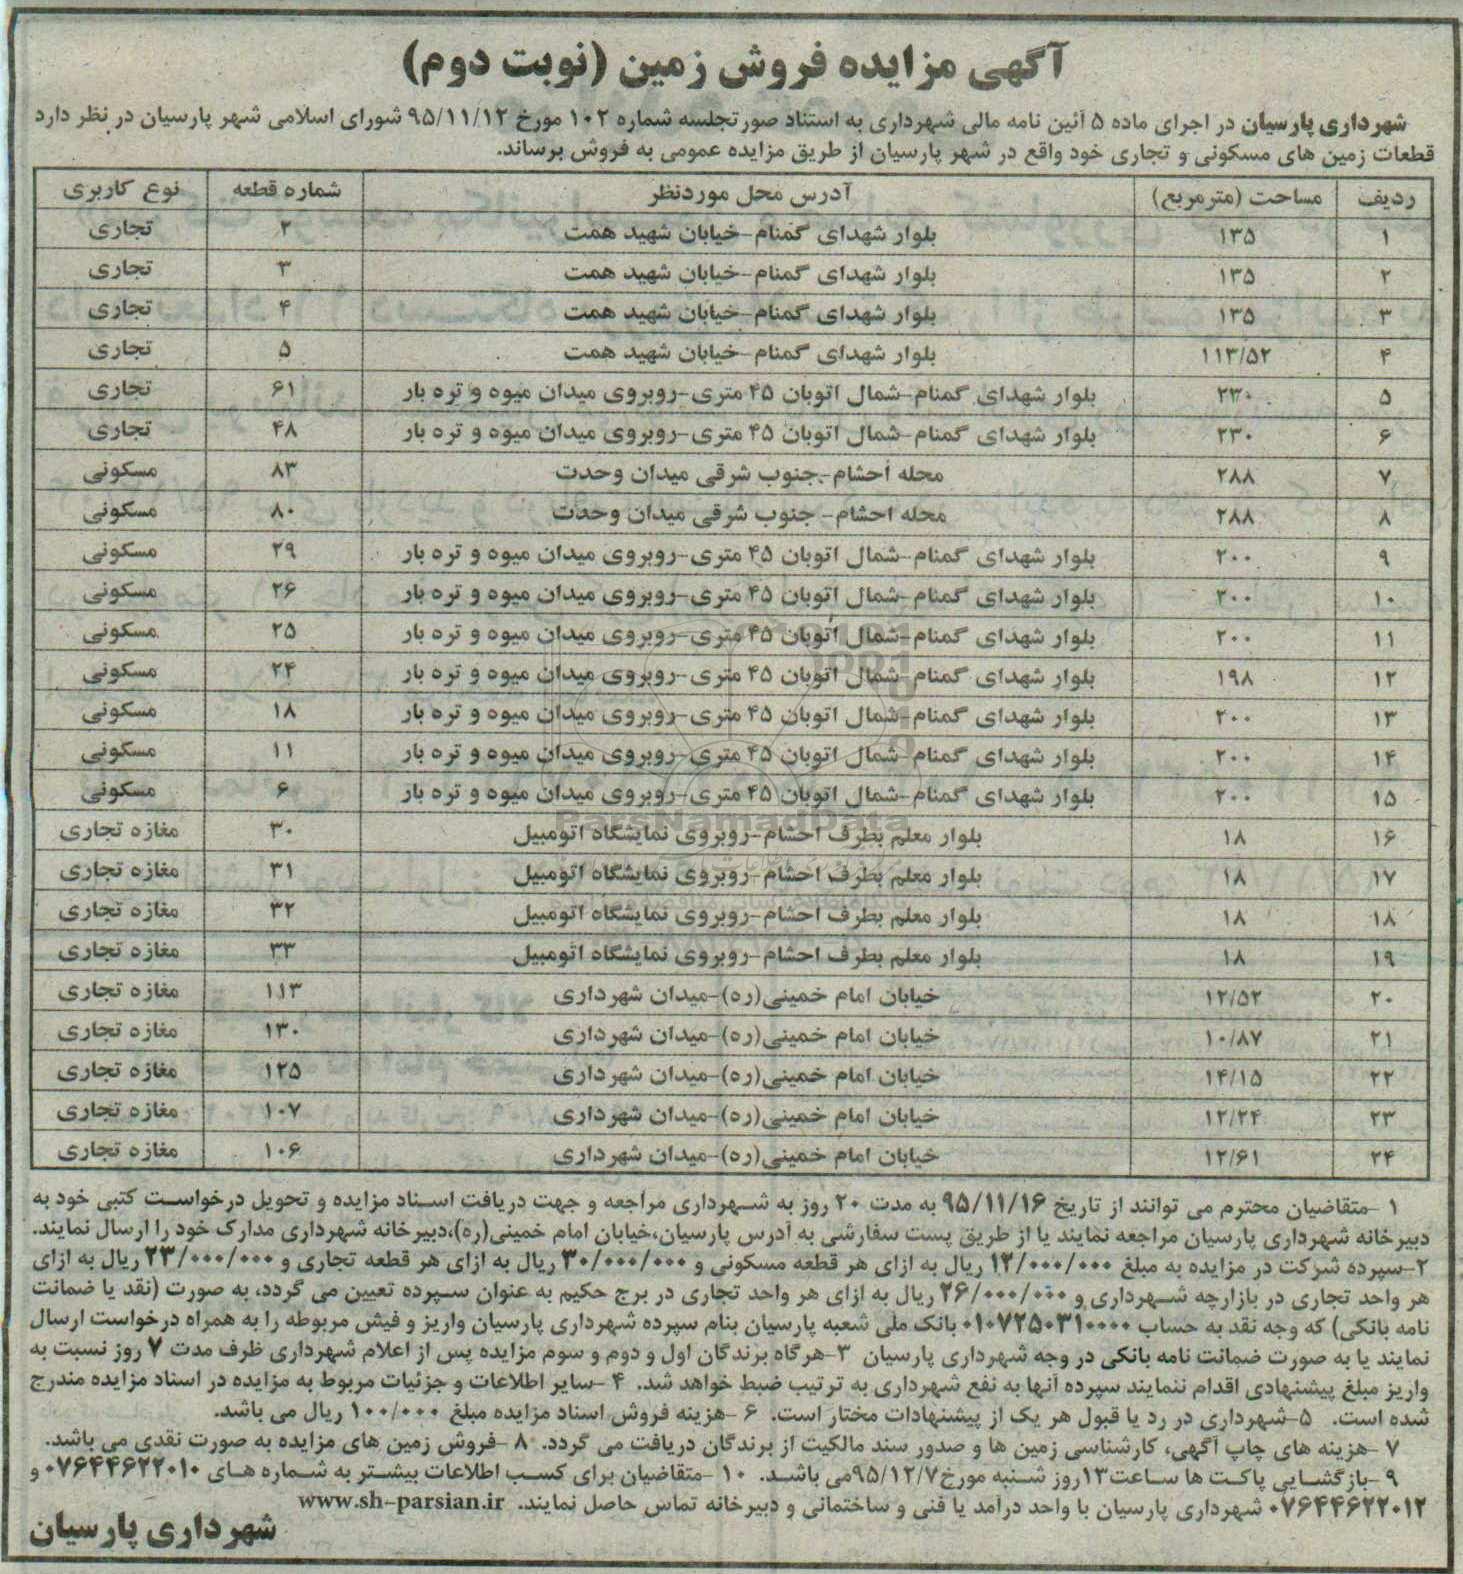 آگهی مزایده فروش زمین (نوبت دوم)
شهرداری پارسیان در اجرای ماده ۵ آئین نامه مالی شهرداری به استناد صورتجلسه شماره ۱۰۲ مورخ ۹۵/۱۱/۱۲ شورای اسلامی شهر پارسیان در نظر دارد
قطعات زمین های مسکونی و تجاری خود واقع در شهر پارسیان از طریق مزایده عمومی به فروش برساند.
ردیف مساحت (مترمربع) آدرس محل موردنظر شماره قطعه نوع کاربری
۱ ۱۳۵ بلوار شهدای گمنام-خیابان شهید همت ۲ تجاری
۲ ۱۳۵ بلوار شهدای گمنام-خیابان شهید همت ۳ تجاری
۳ ۱۳۵ بلوار شهدای گمنام-خیابان شهید همت ۴ تجاری
۴ ۱۱۳/۵۲ بلوار شهدای گمنام-خیابان شهید همت ۵ تجاری
۵ ۲۳۰ بلوار شهدای گمنام-شمال اتوبان ۴۵ متری-روبروی میدان میوه و تره بار ۶۱ تجاری
۶ ۲۳۰ بلوار شهدای گمنام-شمال اتوبان ۴۵ متری-روبروی میدان میوه و تره بار ۴۸ تجاری
۷ ۲۸۸ محله احشام-جنوب شرقی میدان وحدت ۸۳ مسکونی
۸ ۲۸۸ محله احشام- جنوب شرقی میدان وحدت ۸۰ مسکونی
۹ ۲۰۰ بلوار شهدای گمنام-شمال اتوبان ۴۵ متری-روبروی میدان میوه و تره بار ۲۹ مسکونی
۱۰ ۲۰۰ بلوار شهدای گمنام-شمال اتوبان ۴۵ متری-روبروی میدان میوه و تره بار ۲۶ مسکونی
۱۱ ۲۰۰ بلوار شهدای گمنام-شمال اتوبان ۴۵ متری-روبروی میدان میوه و تره بار ۲۵ مسکونی
۱۲ ۱۹۸ بلوار شهدای گمنام-شمال اتوبان ۴۵ متری-روبروی میدان میوه و تره بار ۲۴ مسکونی
۱۳ ۲۰۰ بلوار شهدای گمنام-شمال اتوبان ۴۵ متری-روبروی میدان میوه و تره بار ۱۸ مسکونی
۱۴ ۲۰۰ بلوار شهدای گمنام-شمال اتوبان ۴۵ متری-روبروی میدان میوه و تره بار ۱۱ مسکونی
۱۵ ۲۰۰ بلوار شهدای گمنام-شمال اتوبان ۴۵ متری-روبروی میدان میوه و تره بار ۶ مسکونی
۱۶ ۱۸ بلوار معلم بطرف احشام-روبروی نمایشگاه اتومبیل ۳۰ مغازه تجاری
۱۷ ۱۸ بلوار معلم بطرف احشام-روبروی نمایشگاه اتومبیل ۳۱ مغازه تجاری
۱۸ ۱۸ بلوار معلم بطرف احشام-روبروی نمایشگاه اتومبیل ۳۲ مغازه تجاری
۱۹ ۱۸ بلوار معلم بطرف احشام-روبروی نمایشگاه اتومبیل ۳۳ مغازه تجاری
۲۰ ۱۲/۵۲ خیابان امام خمینی(ره)-میدان شهرداری ۱۱۳ مغازه تجاری
۲۱ ۱۰/۸۷ خیابان امام خمینی(ره)-میدان شهرداری ۱۳۰ مغازه تجاری
۲۲ ۱۴/۱۵ خیابان امام خمینی(ره)-میدان شهرداری ۱۲۵ مغازه تجاری
۲۳ ۱۲/۲۴ خیابان امام خمینی(ره)-میدان شهرداری ۱۰۷ مغازه تجاری
۲۴ ۱۲/۶۱ خیابان امام خمینی(ره)-میدان شهرداری ۱۰۶ مغازه تجاری
ParsNamadData
۱ -متقاضیان محترم می توانند از تاریخ ۹۵/۱۱/۱۶ به مدت ۲۰ روز به شهرداری مراجعه و جهت دریافت اسناد مزایده و تحویل درخواست کتبی خود به
دبیرخانه شهرداری پارسیان مراجعه نمایند یا از طریق پست سفارشی به آدرس پارسیان،خیابان امام خمینی(ره)،دبیرخانه شهرداری مدارک خود را ارسال نمایند.
۲-سپرده شرکت در مزایده به مبلغ ۱۲/۰۰۰/۰۰۰ ریال به ازای هر قطعه مسکونی و ۳۰/۰۰۰/۰۰۰ ریال به ازای هر قطعه تجاری و ۲۳/۰۰۰/۰۰۰ ریال به ازای
هر واحد تجاری در بازارچه شهرداری و ۲۶/۰۰۰/۰۰۰ ریال به ازای هر واحد تجاری در برج حکیم به عنوان سپرده تعیین می گردد، به صورت (نقد یا ضمانت
نامه بانکی) که وجه نقد به حساب ۰۱۰۷۲۵۰۳۱۰۰۰۰ بانک ملی شعبه پارسیان بنام سپرده شهرداری پارسیان واریز و فیش مربوطه را به همراه درخواست ارسال
نمایند یا به صورت ضمانت نامه بانکی در وجه شهرداری پارسیان ۳-هرگاه برندگان اول و دوم و سوم مزایده پس از اعلام شهرداری ظرف مدت ۷ روز نسبت به
واریز مبلغ پیشنهادی اقدام ننمایند سپرده آنها به نفع شهرداری به ترتیب ضبط خواهد شد. ۴ -سایر اطلاعات و جزئیات مربوط به مزایده در اسناد مزایده مندرج
شده است. ۵-شهرداری در رد یا قبول هر یک از پیشنهادات مختار است. ۶ -هزینه فروش اسناد مزایده مبلغ ۱۰۰/۰۰۰ ریال می باشد.
۷ -هزینه های چاپ آگهی، کارشناسی زمین ها و صدور سند مالکیت از برندگان دریافت می گردد. ۸ -فروش زمین های مزایده به صورت نقدی می باشد.
۹ -بازگشایی پاکت ها ساعت۱۳روز شنبه مورخ۹۵/۱۲/۷می باشد. ۱۰ -متقاضیان برای کسب اطلاعات بیشتر به شماره های ۰۷۶۴۴۶۲۲۰۱۰ و
۰۷۶۴۴۶۲۲۰۱۲ شهرداری پارسیان با واحد درآمد یا فنی و ساختمانی و دبیرخانه تماس حاصل نمایند. www.sh-parsian.ir
شهرداری پارسیان